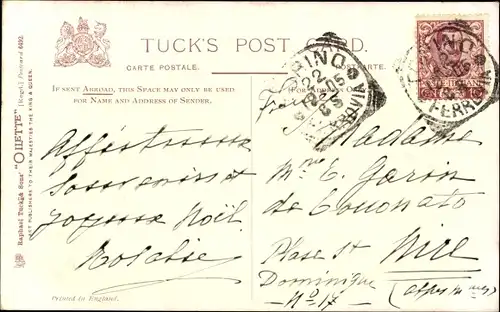 TUCK'S POST CARD.
CARTE POSTALE.
IF SENT ABROAD, THIS SPACE MAY ONLY BE USED
FOR NAME AND ADDRESS OF SENDER.
(FOR ADDRESS ONLY.)
Raphael Tuck & Sons' "OILETTE" [Regd.] Postcard 6492.
ART PUBLISHERS TO THEIR MAJESTIES THE KING & QUEEN.
Affectueux
Souvenirs et
joyeux Noël
Printed in England.
TORINO
22
12 05
FERROVIA
TORINO
FERROVIA
Madame
Mme C. Garin
de Coconato
Place St
Dominique
No 17
Nice
(Alpes mmes)